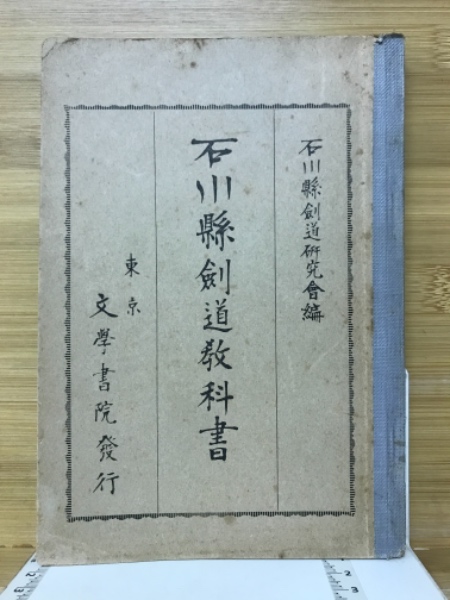 石川縣劍道硏究會編
石川縣劍道敎科書
東京
文學書院發行